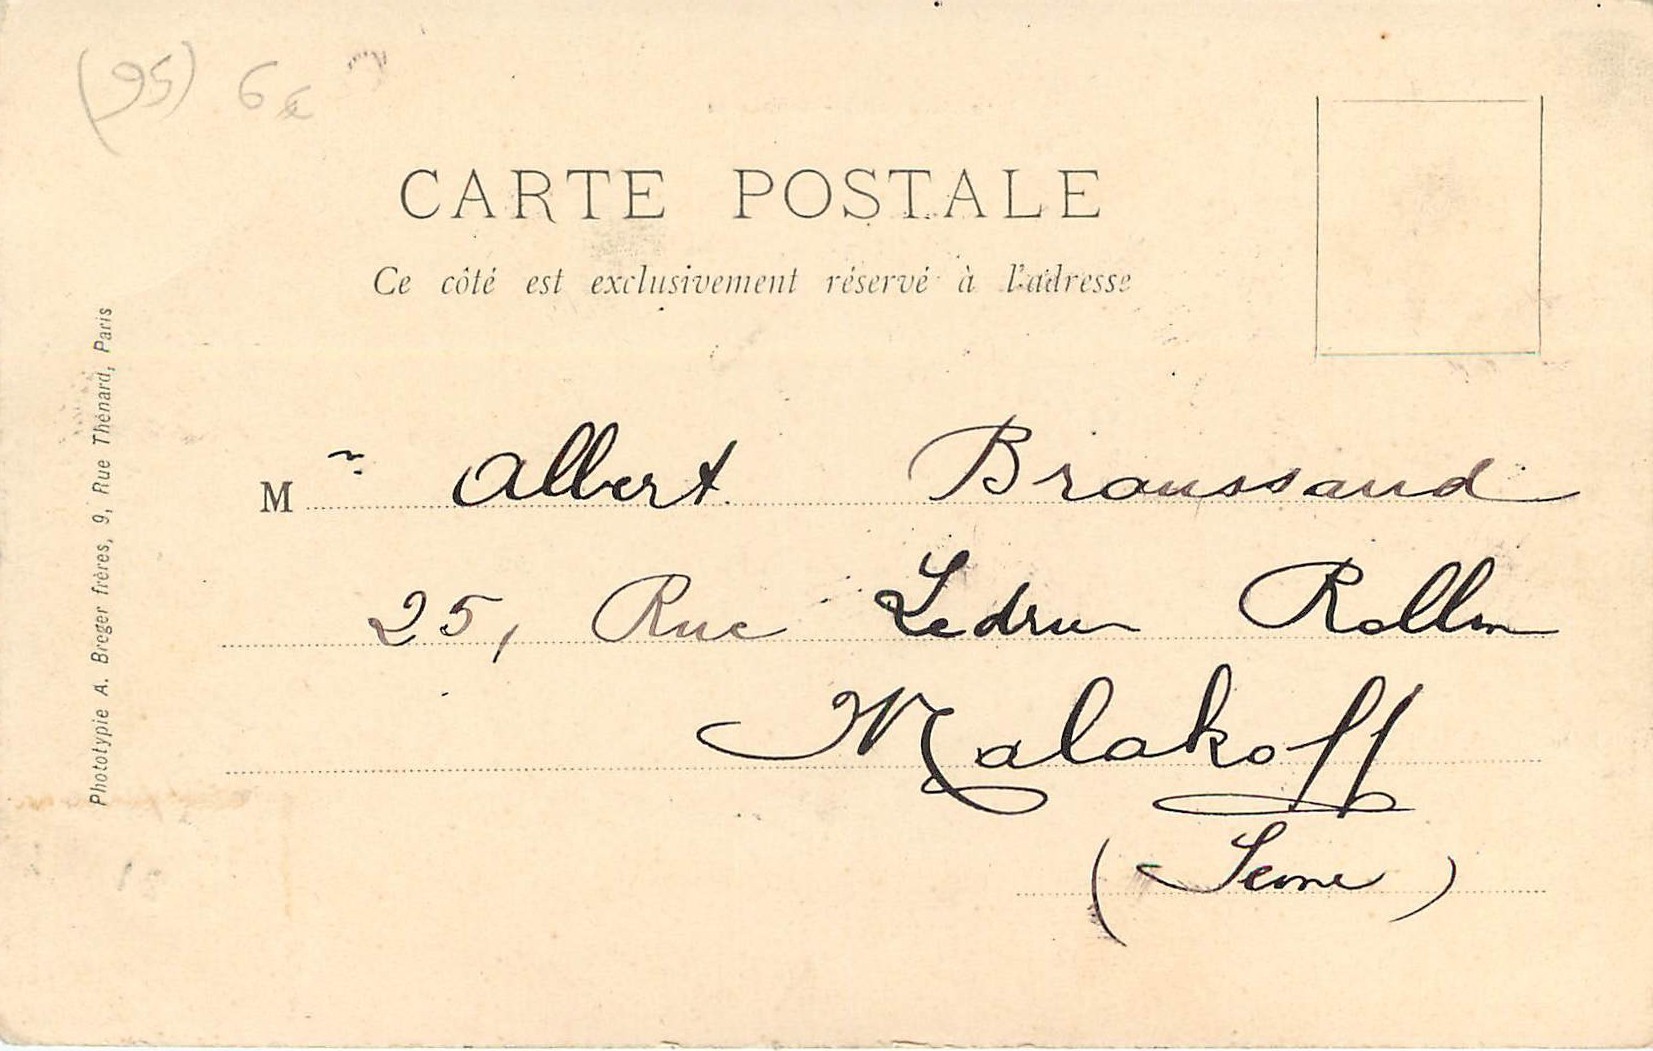 (95) 6€
CARTE POSTALE
Ce côté est exclusivement réservé à l'adresse
Mr Albert Broussaud
25, Rue Ledru Rollin
Malakoff
(Seine)
Phototypie A. Breger frères, 9, Rue Thénard, Paris